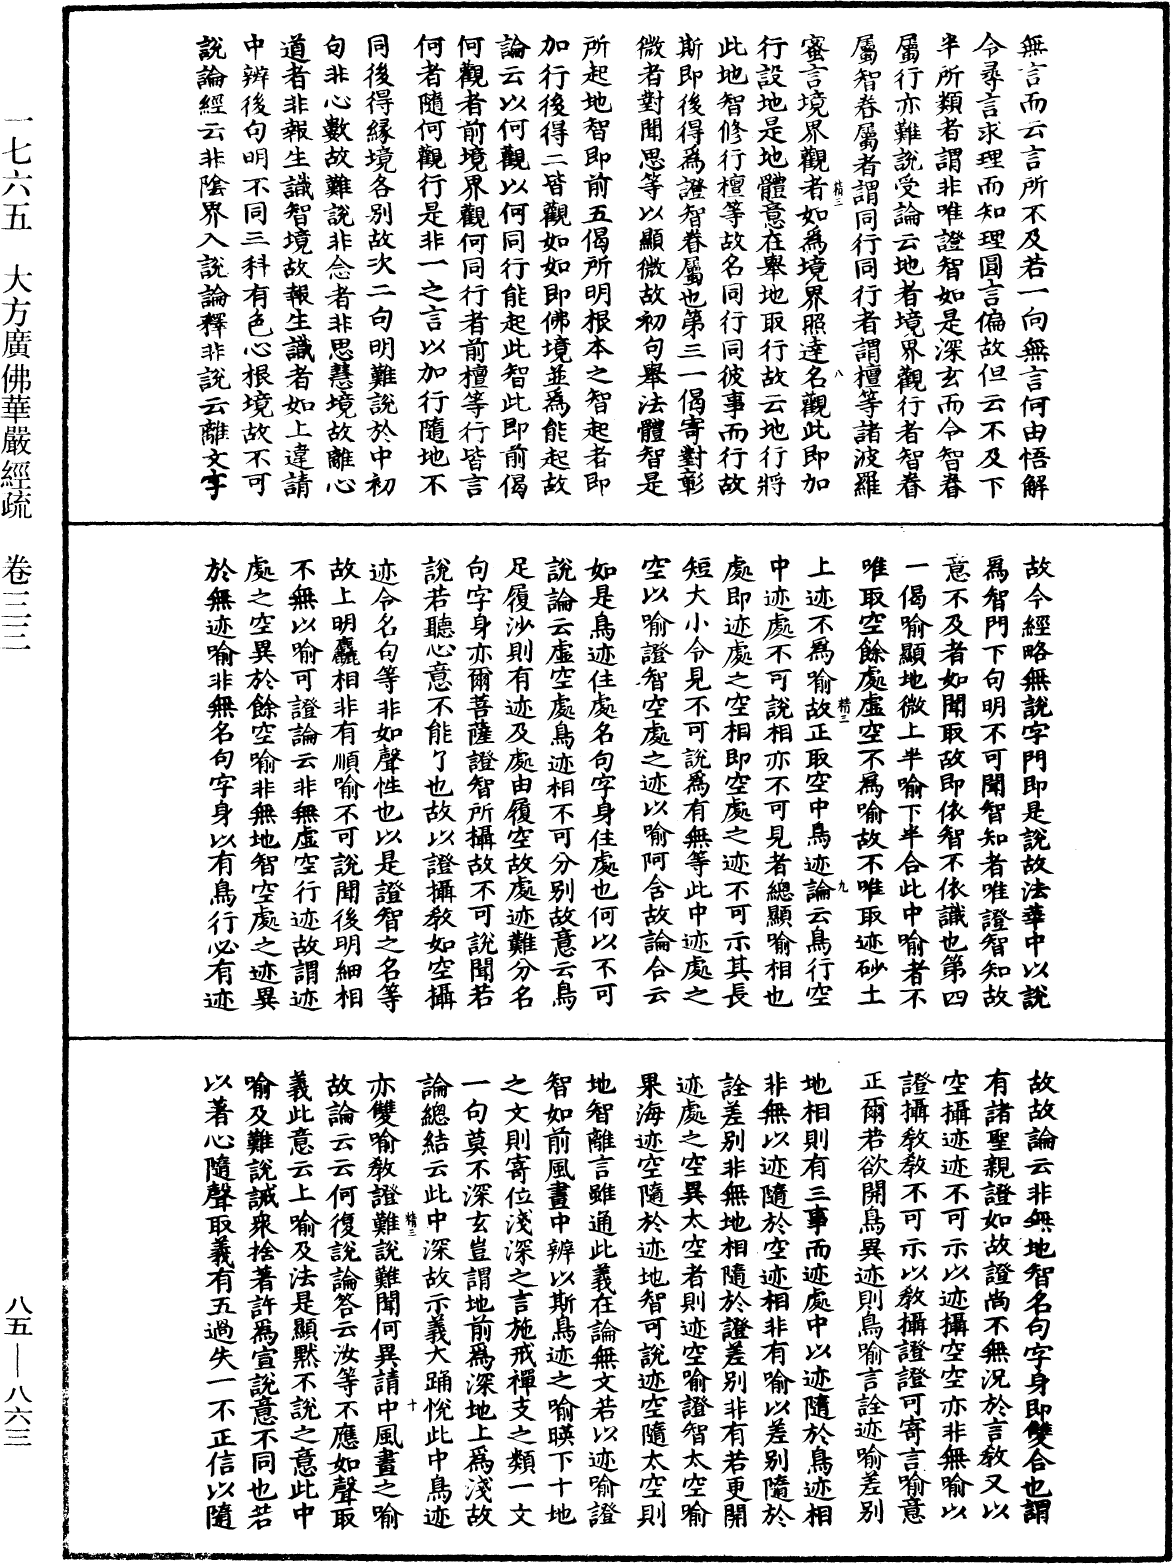 無言而云言所不及若一向無言何由悟解
令尋言求理而知理圓言偏故但云不及下
半所類者謂非唯證智如是深玄而令智眷
屬行亦難說受論云地者境界觀行者智眷
屬智眷屬者謂同行同行者謂檀等諸波羅
蜜言境界觀者如為境界照達名觀此即加
行設地是地體意在舉地取行故云地行將
此地智修行檀等故名同行同彼事而行故
斯即後得為證智眷屬也第三一偈寄對彰
微者對聞思等以顯微故初句舉法體智是
所起地智即前五偈所明根本之智起者即
加行後得二皆觀如如即佛境並為能起故
論云以何觀以何同行能起此智此即前偈
何觀者前境界觀何同行者前檀等行皆言
何者隨何觀行是非一之言以加行隨地不
同後得緣境各別故次二句明難說於中初
句非心數故難說非念者非思慧境故離心
道者非報生識智境故報生識者如上違請
中辨後句明不同三科有色心根境故不可
說論經云非陰界入說論釋非說云離文字
精三
八
故今經略無說字門即是說故法華中以說
為智門下句明不可聞智知者唯證智知故
意不及者如聞取故即依智不依識也第四
一偈喻顯地微上半喻下半合此中喻者不
唯取空餘處虛空不為喻故不唯取迹砂土
上迹不為喻故正取空中鳥迹論云鳥行空
中迹處不可說相亦不可見者總顯喻相也
處即迹處之空相即空處之迹不可示其長
短大小令見不可說為有無等此中迹處之
空以喻證智空處之迹以喻阿含故論合云
如是鳥迹住處名句字身住處也何以不可
說論云虛空處鳥迹相不可分別故意云鳥
足履沙則有迹及處由履空故處迹難分名
句字身亦爾菩薩證智所攝故不可說聞若
說若聽心意不能了也故以證攝教如空攝
迹令名句等非如聲性也以是證智之名等
故上明麤相非有順喻不可說聞後明細相
不無以喻可證論云非無虛空行迹故謂迹
處之空異於餘空喻非無地智空處之迹異
於無迹喻非無名句字身以有鳥行必有迹
精三
九
故故論云非無地智名句字身即雙合也謂
有諸聖親證如故證尚不無況於言教又以
空攝迹迹不可示以迹攝空空亦非無喻以
證攝教教不可示以教攝證證可寄言喻意
正爾若欲開鳥異迹則鳥喻言詮迹喻差別
地相則有三事而迹處中以迹隨於鳥迹相
非無以迹隨於空迹相非有喻以差別隨於
詮差別非無地相隨於證差別非有若更開
迹處之空異太空者則迹空喻證智太空喻
果海迹空隨於迹地智可說迹空隨太空則
地智離言雖通此義在論無文若以迹喻證
智如前風畫中辨以斯鳥迹之喻暎下十地
之文則寄位淺深之言施戒禪支之類一文
一句莫不深玄豈謂地前為深地上為淺故
論總結云此中深故示義大踊悅此中鳥迹
亦雙喻教證難說難聞何異請中風畫之喻
故論云云何復說論答云汝等不應如聲取
義此意云上喻及法是顯默不說之意此中
喻及難說誡衆捨著許為宣說意不同也若
以著心隨聲取義有五過失一不正信以隨
精三
十
一七六五　大方廣佛華嚴經疏　卷三三
八五——八六三